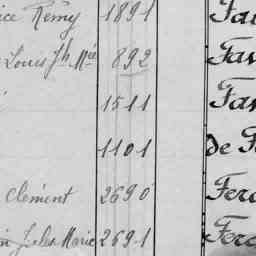 ice Rémy 1891 Fa
Louis Jh Mce 892 Fav
1511 Fav
1101 de Fa
clément 2690 Ferc
in Jules Marie 2691 Ferc